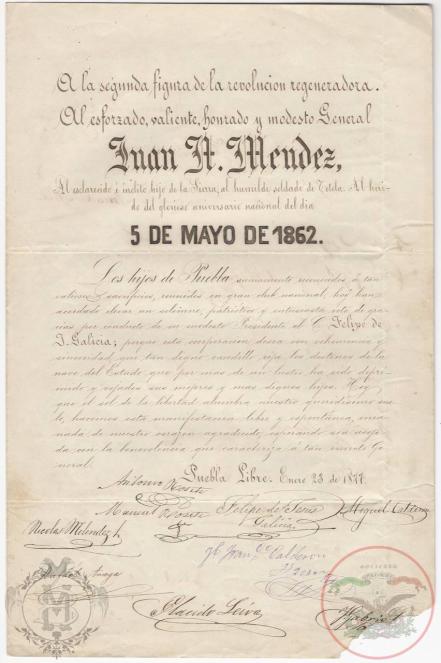 A la segunda figura de la revolucion regeneradora.
Al esforzado, valiente, honrado y modesto General
Juan N. Mendez,
Al esclarecido é inclito hijo de la Sierra, al humilde soldado de Tetela. Al heroe
de del glorioso aniversario nacional del dia
5 DE MAYO DE 1862.
Los hijos de Puebla sumamente reconocidos á tan
valiosos sacrificios, reunidos en gran club nacional, hoy han
acordado dar un solemne, patriótico y entusiasta voto de gra-
cias por conducto de su modesto Presidente el C. Felipe de
J. Galicia; porque esta corporacion desea con vehemencia y
sinceridad que tan digno caudillo rija los destinos de la
nave del Estado que por mas de un lustro ha sido depri-
mido y vejados sus mejores y mas dignos hijos. Hoy
que el sol de la libertad alumbra nuestro queridisimo sue-
lo, hacemos esta manifestacion libre y espontánea, ema-
nada de nuestro corazon agradecido, esperando sea acogi-
da con la benevolencia que caracteriza á tan invicto Ge-
neral.
Puebla Libre. Enero 23 de 1877.
Antonio
Manuel
Felipe de Jesus
Galicia
Miguel
Nicolas Melendez
Calderon
Rafael
Placido Leiva